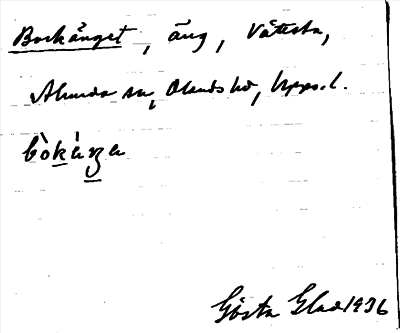 Borkänget, äng, Vättesta,
Alunda sn, Olands hd, Upps. l.
bòkàŋa
Gösta Glad 1936